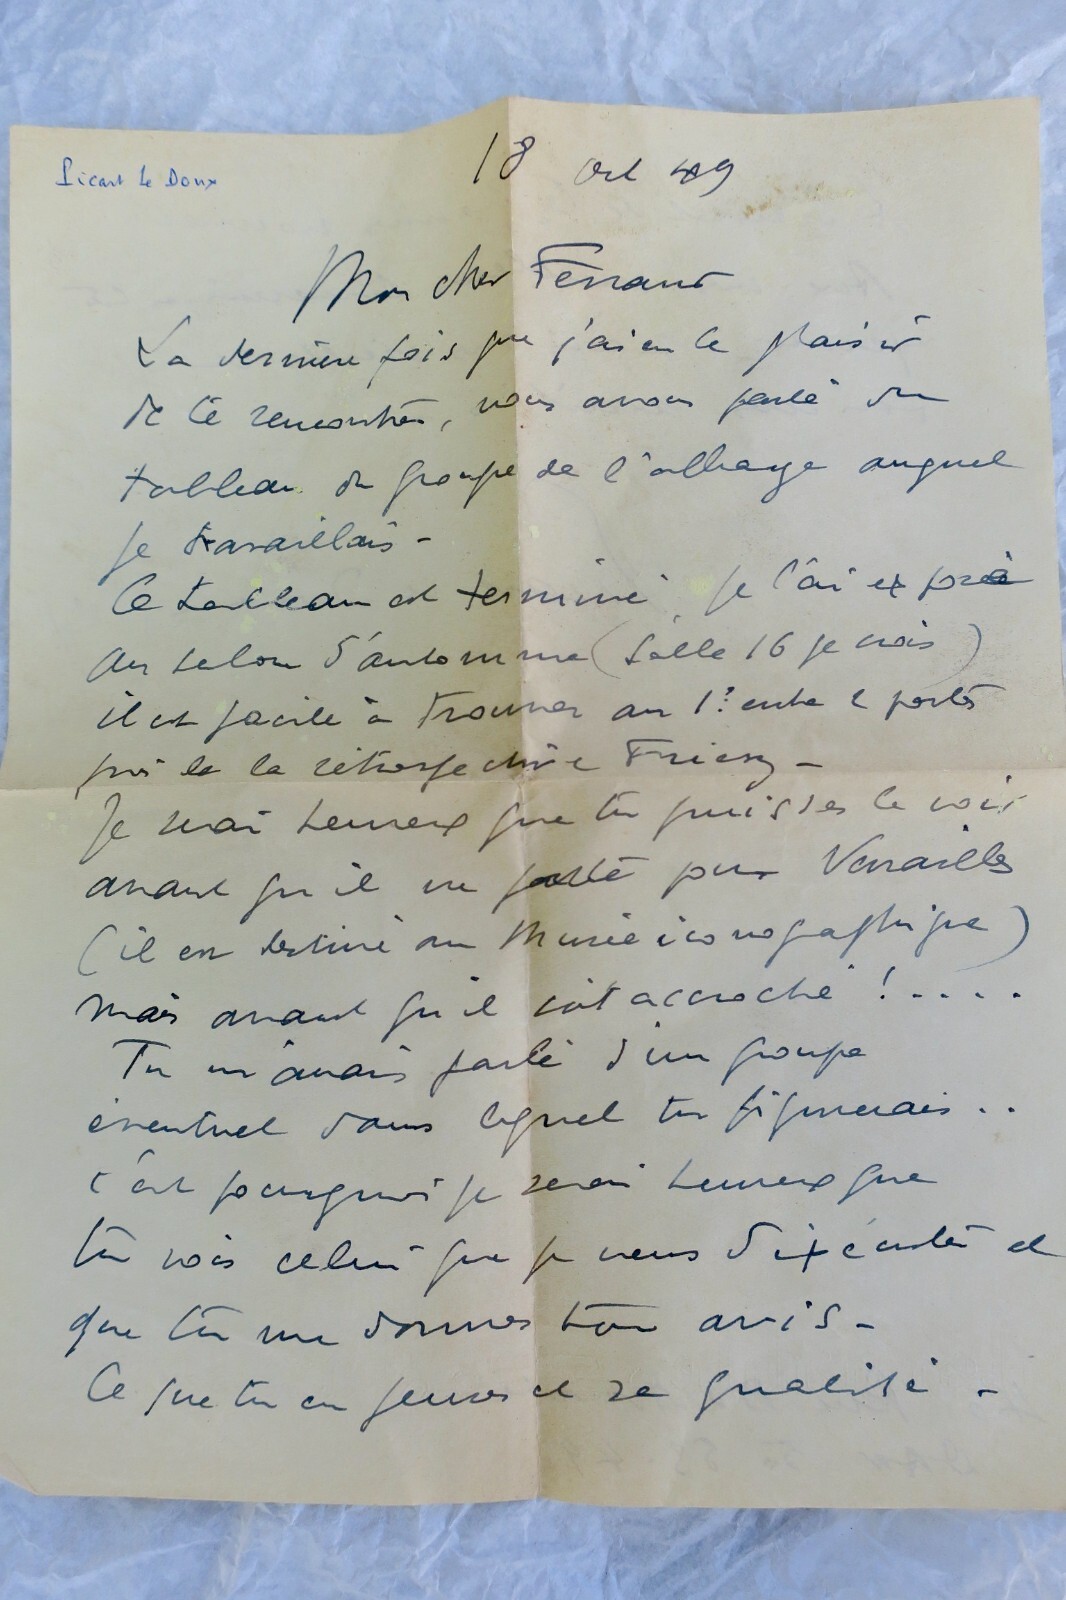 Picart Le Doux
18 Oct 49
Mon cher Ferrand
La dernière fois que j'ai eu le plaisir
de te rencontrer, nous avons parlé du
tableau du groupe de l'abbaye auquel
je travaillais -
Ce tableau est terminé je l'ai exposé
au salon d'automne (Salle 16 je crois)
il est facile à trouver au 1er entre 2 portes
près de la rétrospective Friesz -
Je serai heureux que tu puisses le voir
avant qu'il ne parte pour Versailles
(il est destiné au Musée iconographique)
mais avant qu'il soit accroché ! ....
Tu m'avais parlé d'un groupe
éventuel dans lequel tu figurerais ..
c'est pourquoi je serai heureux que
tu vois celui que je viens d'exécuter et
que tu me donnes ton avis -
Ce que tu en penses et sa qualité -